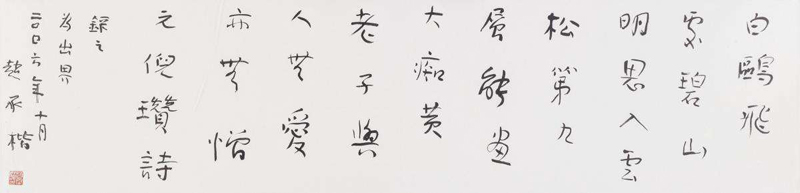 白鷗飛
處碧山
明思入雲
松第几
層能畫
大痴黃
老子與
人無愛
亦無憎
元倪瓚詩
錄之
為出界
二〇〇六年十月
趙承楷